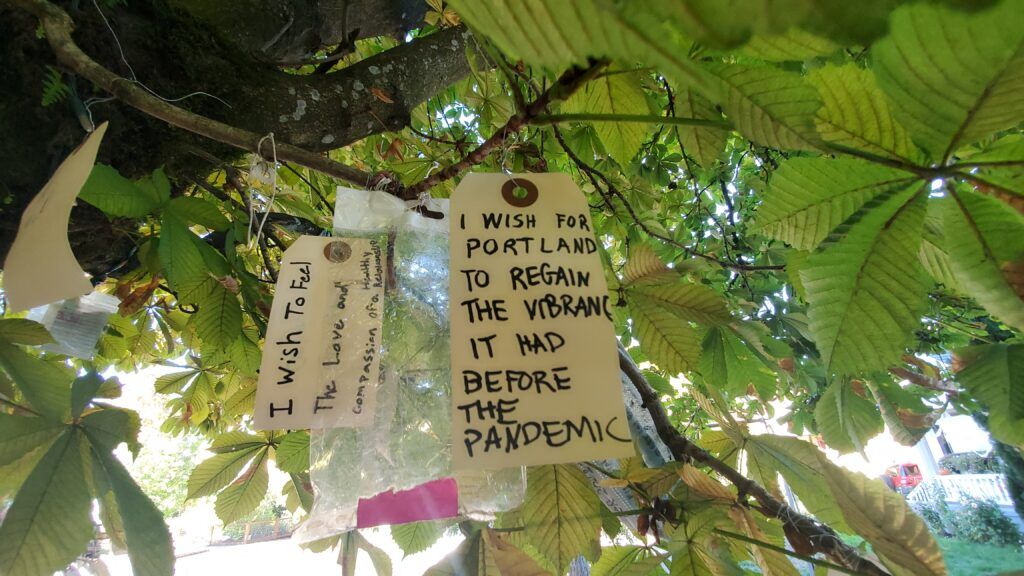 I Wish To Feel
The Love and
Compassion of a Healthy
I WISH FOR
PORTLAND
TO REGAIN
THE VIBRANC
IT HAD
BEFORE
THE
PANDEMIC